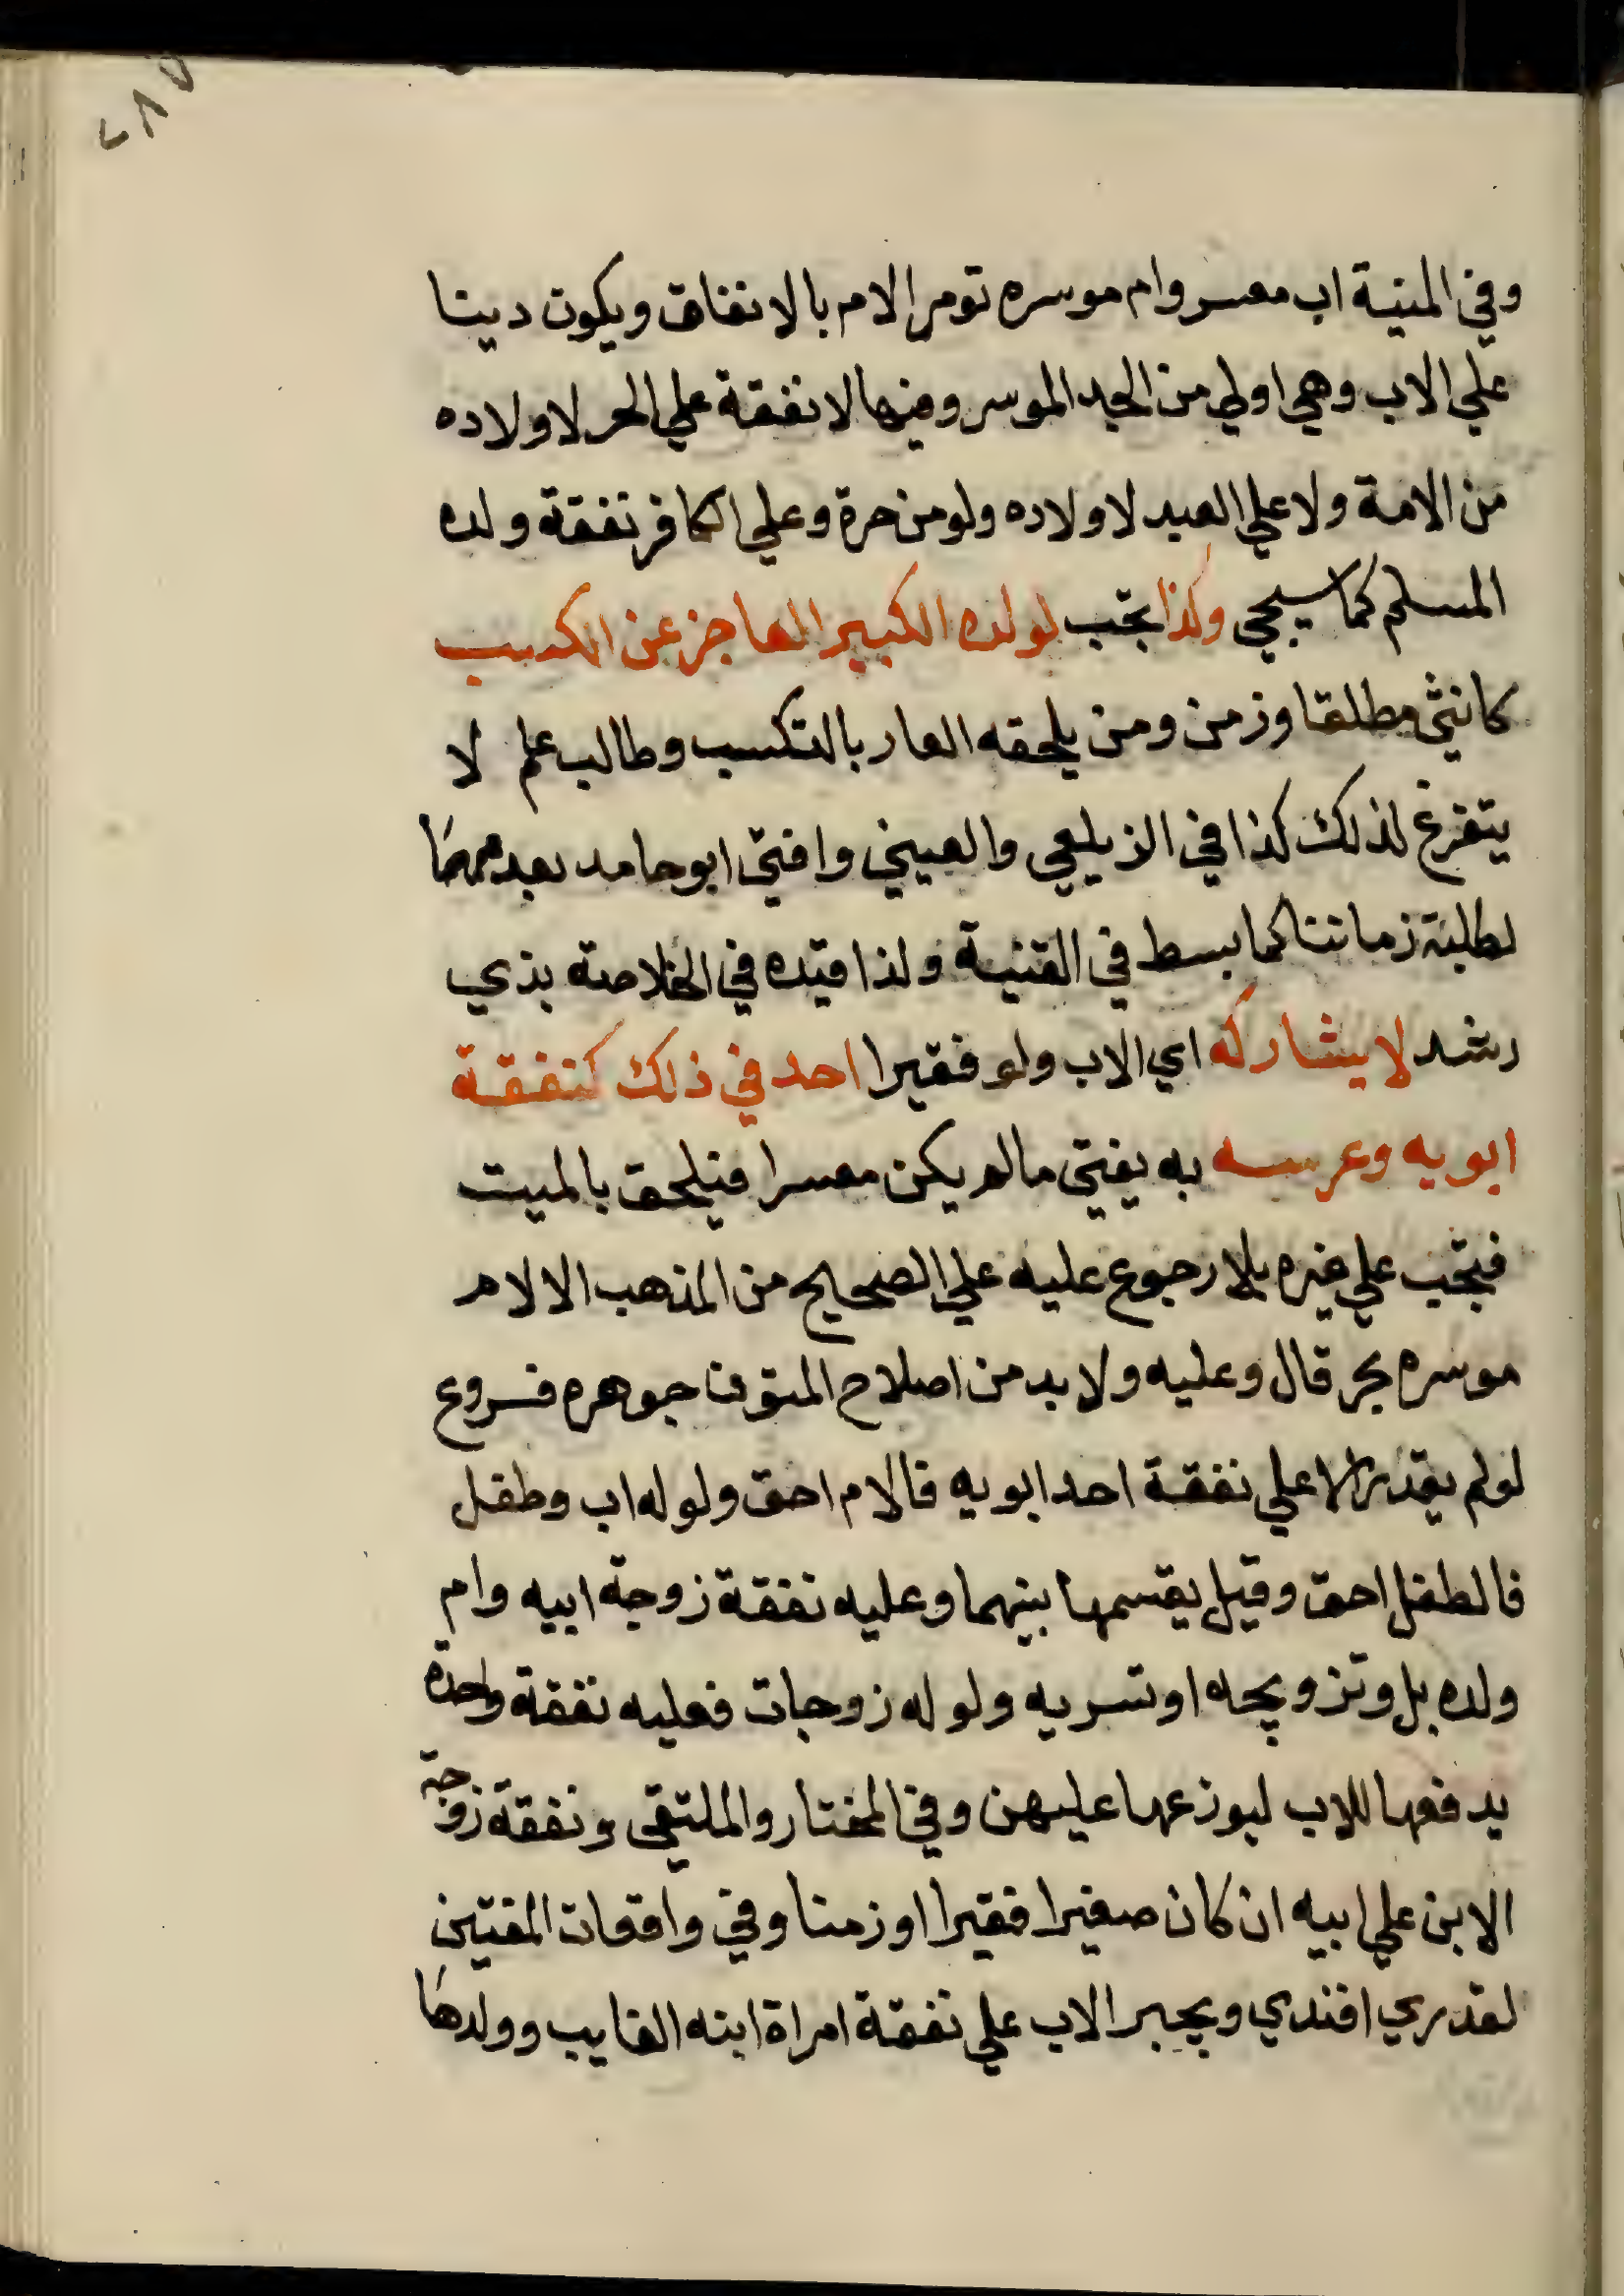 ٢٨٥
وفي المنية اب معسر وام موسره تومر الام بالانفاق ويكون دينا
علي الاب وهي اولي من الجد الموسر وفيها لا نفقة علي الحر لاولاده
من الامة ولا علي العبد لاولاده ولو من حرة وعلي الكافر نفقة ولده
المسلم كما سيجي وكذا تجب لولده الكبير العاجز عن الكسب
كانثي مطلقا وزمن ومن يلحقه العار بالتكسب وطالب علم لا
يتفرغ لذلك كذا في الزيلعي والعيني وافتي ابو حامد بعدمها
لطلبة زماننا كما بسط في القنية ولذا قيده في الخلاصة بذي
رشد لا يشاركه اي الاب ولو فقيرا احد في ذلك كنفقة
ابويه وعرسه به يفتي مالم يكن معسرا فيلحق بالميت
فتجب علي غيره بلا رجوع عليه علي الصحيح من المذهب الا لام
موسره بحر قال وعليه ولا بد من اصلاح المتون جوهره فروع
لو لم يقدر الا علي نفقة احد ابويه فالام احق ولو له اب وطفل
فالطفل احق وقيل يقسمها بينهما وعليه نفقة زوجة ابيه وام
ولده بل وتزويجه او تسريه ولو له زوجات فعليه نفقة واحدة
يدفعها للاب ليوزعها عليهن وفي المختار والملتقي ونفقة زوجة
الابن علي ابيه ان كان صغيرا فقيرا او زمنا وفي واقعات المفتين
لقدري افندي ويجبر الاب علي نفقة امراة ابنه الغايب وولدها